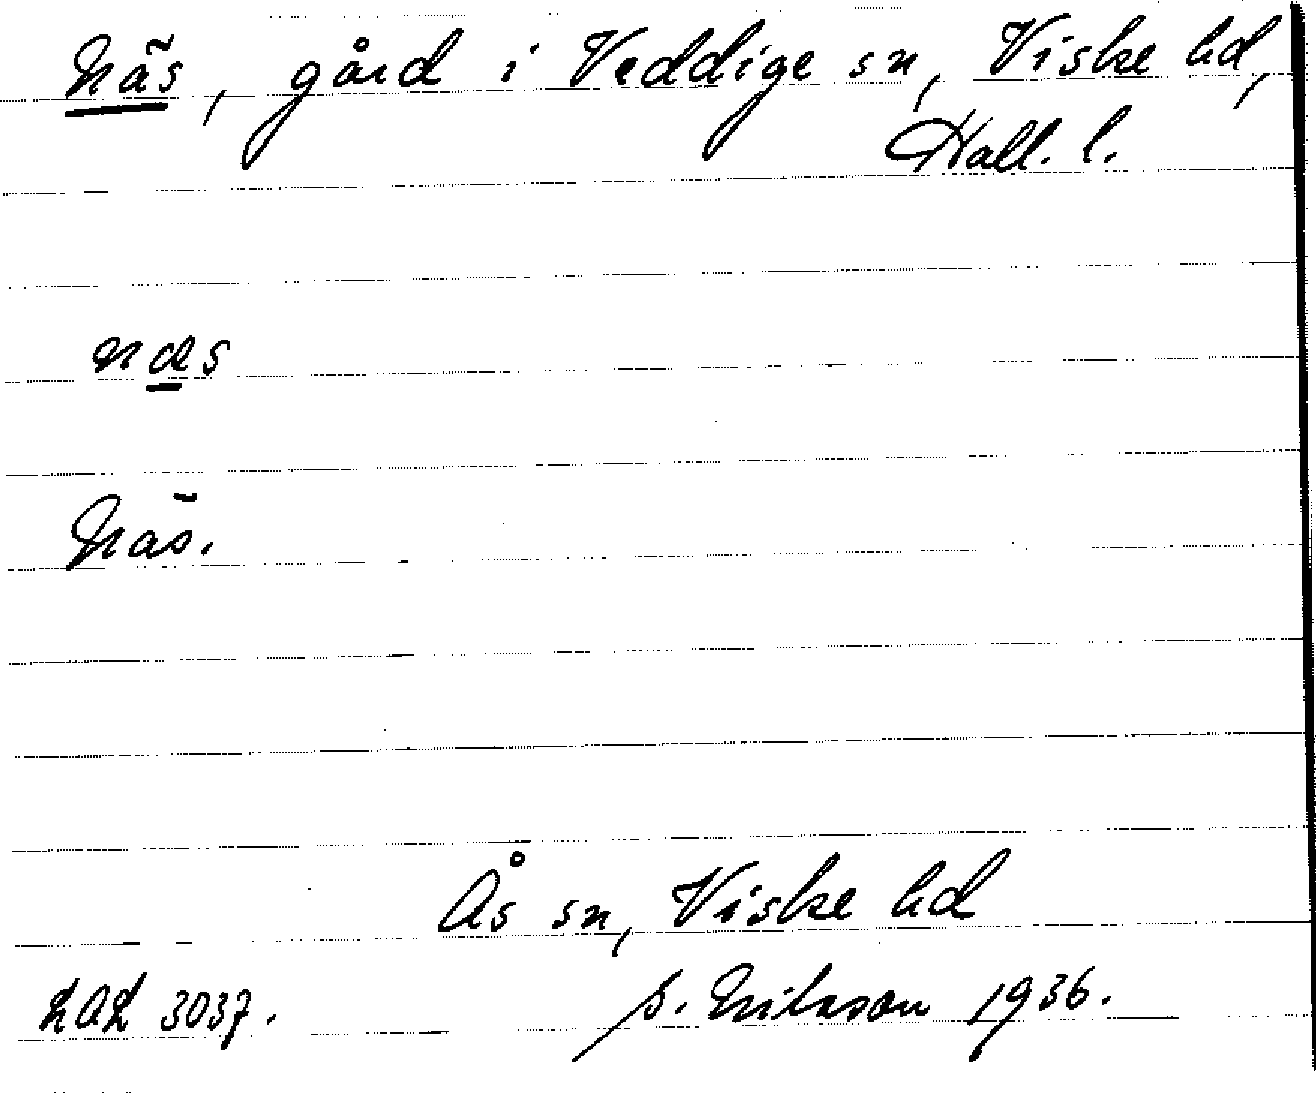 Näs, gård i Veddige sn, Viske hd,
Hall. l.
næs
Näs.
Ås sn, Viske hd
LAL 3037. S. Eriksson 1936.